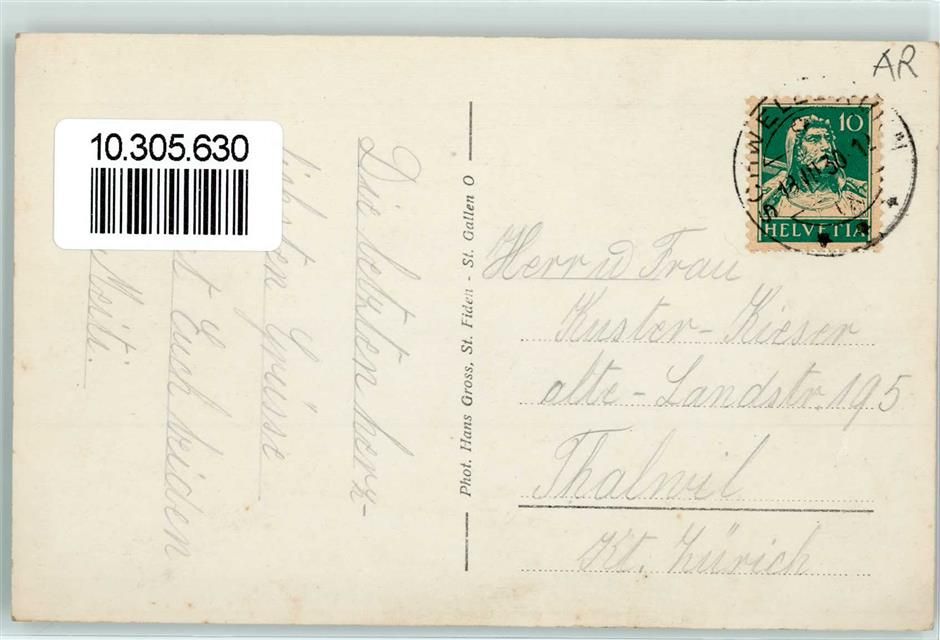 AR
10.305.630
10
HELVETIA
18.VII.30
Die letzten herz-
lichsten Grüsse
Euch beiden
Meiti.
Phot. Hans Gross, St. Fiden - St. Gallen O
Herr u Frau
Kuster-Kieser
alte-Landstr. 195
Thalwil
Kt. Zürich